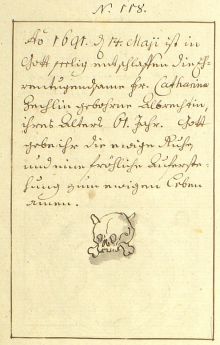 N. 118.
Ao 1691. d 14. Maji ist in
Gott seelig entschlaffen die Eh-
rentugendsame fr. Catharina
gebohrne Albrechtin,
ihres Alters 61. Jahr. Gott
gebe ihr die ewige Ruhe,
und eine fröhliche Aufferste-
hung zum ewigen Leben
amen.